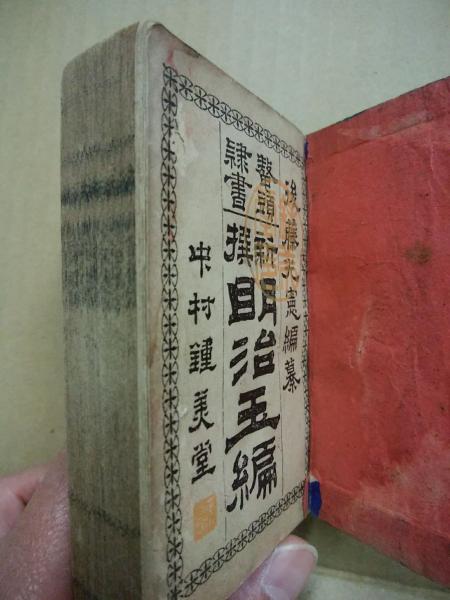 後藤 憲編纂
鼇頭
隷書
新撰
明治玉編
中村鍾美堂